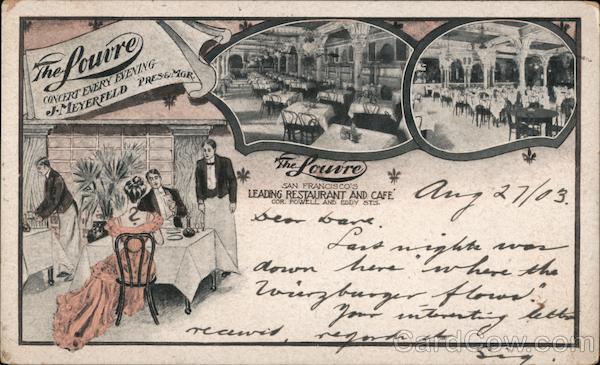 The Louvre
CONCERT EVERY EVENING
J. MEYERFELD PRES & MGR.
The Louvre
SAN FRANCISCO'S
LEADING RESTAURANT AND CAFE
COR. POWELL AND EDDY STS.
Aug 27/03.
Dear Dave.
Last night was
down here "where the
Würzburger flows".
Your interesting letter
received, regards
Sig.
CardCow.com